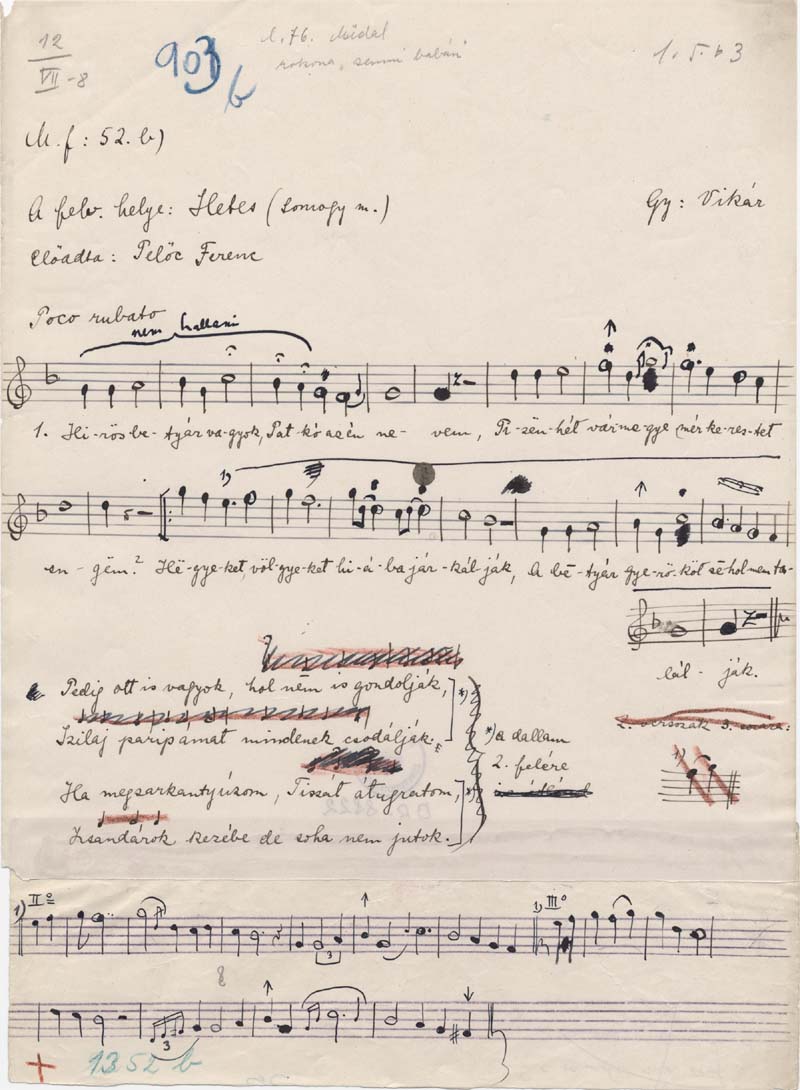 12
VII-8
903
b
l. 76. Műdal
rokona, semmi
1. 5. b 3
M. f: 52. b)
A felv. helye: Hetes (Somogy m.)
Gy: Vikár
Előadta: Pelőc Ferenc
Poco rubato
nem hallani
1. Hi-rös be-tyár va-gyok, Pat-kó az én ne-vem, Ti-zën-hét vár-me-gye mér ke-res-tet
1)
en-gëm? Hë-gye-ket, völ-gye-ket hi-á-ba jár-kál-ják, A be-tyár gye-rö-köt së-hol nem ta-
lál-ják.
Pedig ott is vagyok, hol nëm is gondolják,
Szilaj paripámat mindenek csodálják.
*)
*) a dallam
2. felére
Ha megsarkantyúzom, Tiszát átugratom,
Zsandárok kezébe de soha nem jutok.
*)
2. versszak 3. sora:
1)
1) IIº
3
1) IIIº
3
1352 b